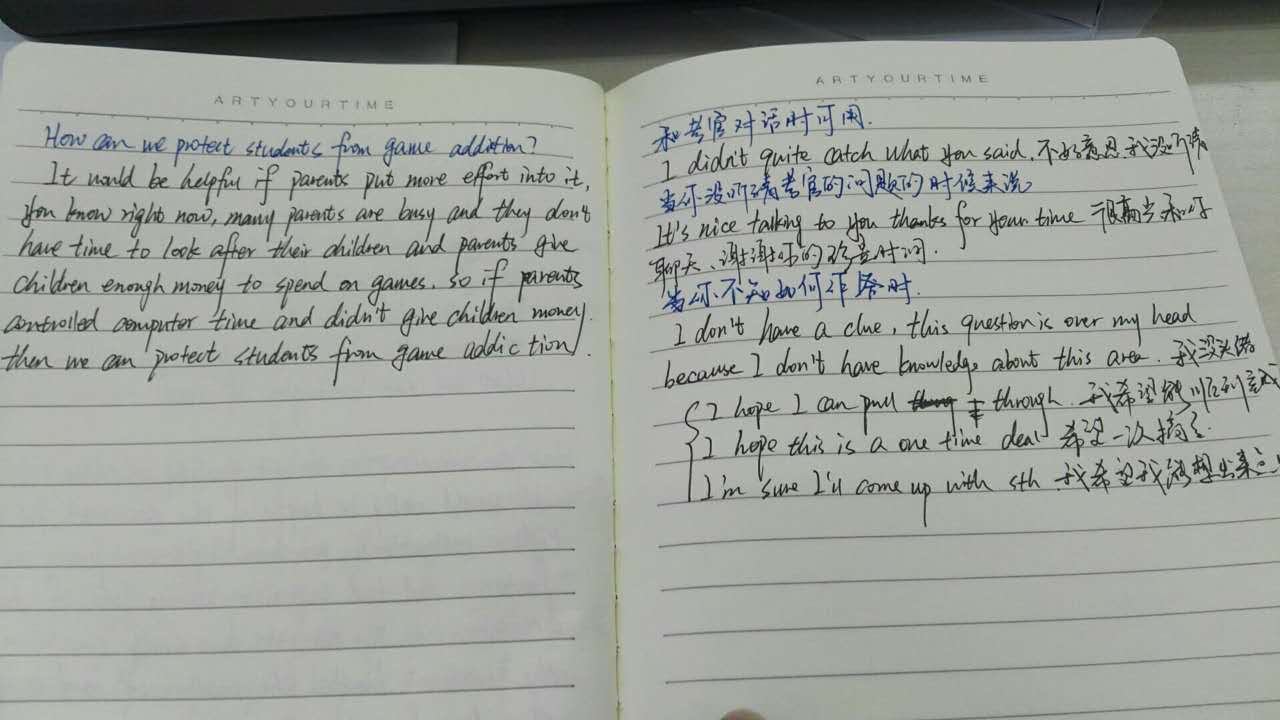 ARTYOURTIME
How can we protect students from game addiction?
It would be helpful if parents put more effort into it,
you know right now, many parents are busy and they don't
have time to look after their children and parents give
children enough money to spend on games. so if parents
controlled computor time and didn't give children money.
then we can protect students from game addiction.
ARTYOURTIME
和考官对话时可用.
I didn't quite catch what you said. 不好意思我没听清
当你没听清考官的问题的时候来说
It's nice talking to you thanks for your time 很高兴和你
聊天、谢谢你的珍贵时间.
当你不知如何作答时.
I don't have a clue, this question is over my head
because I don't have knowledge about this area. 我没头绪
I hope I can pull through. 我希望能顺利完成
I hope this is a one time deal 希望一次搞定.
I'm sure I'll come up with sth. 我希望我能想出来点